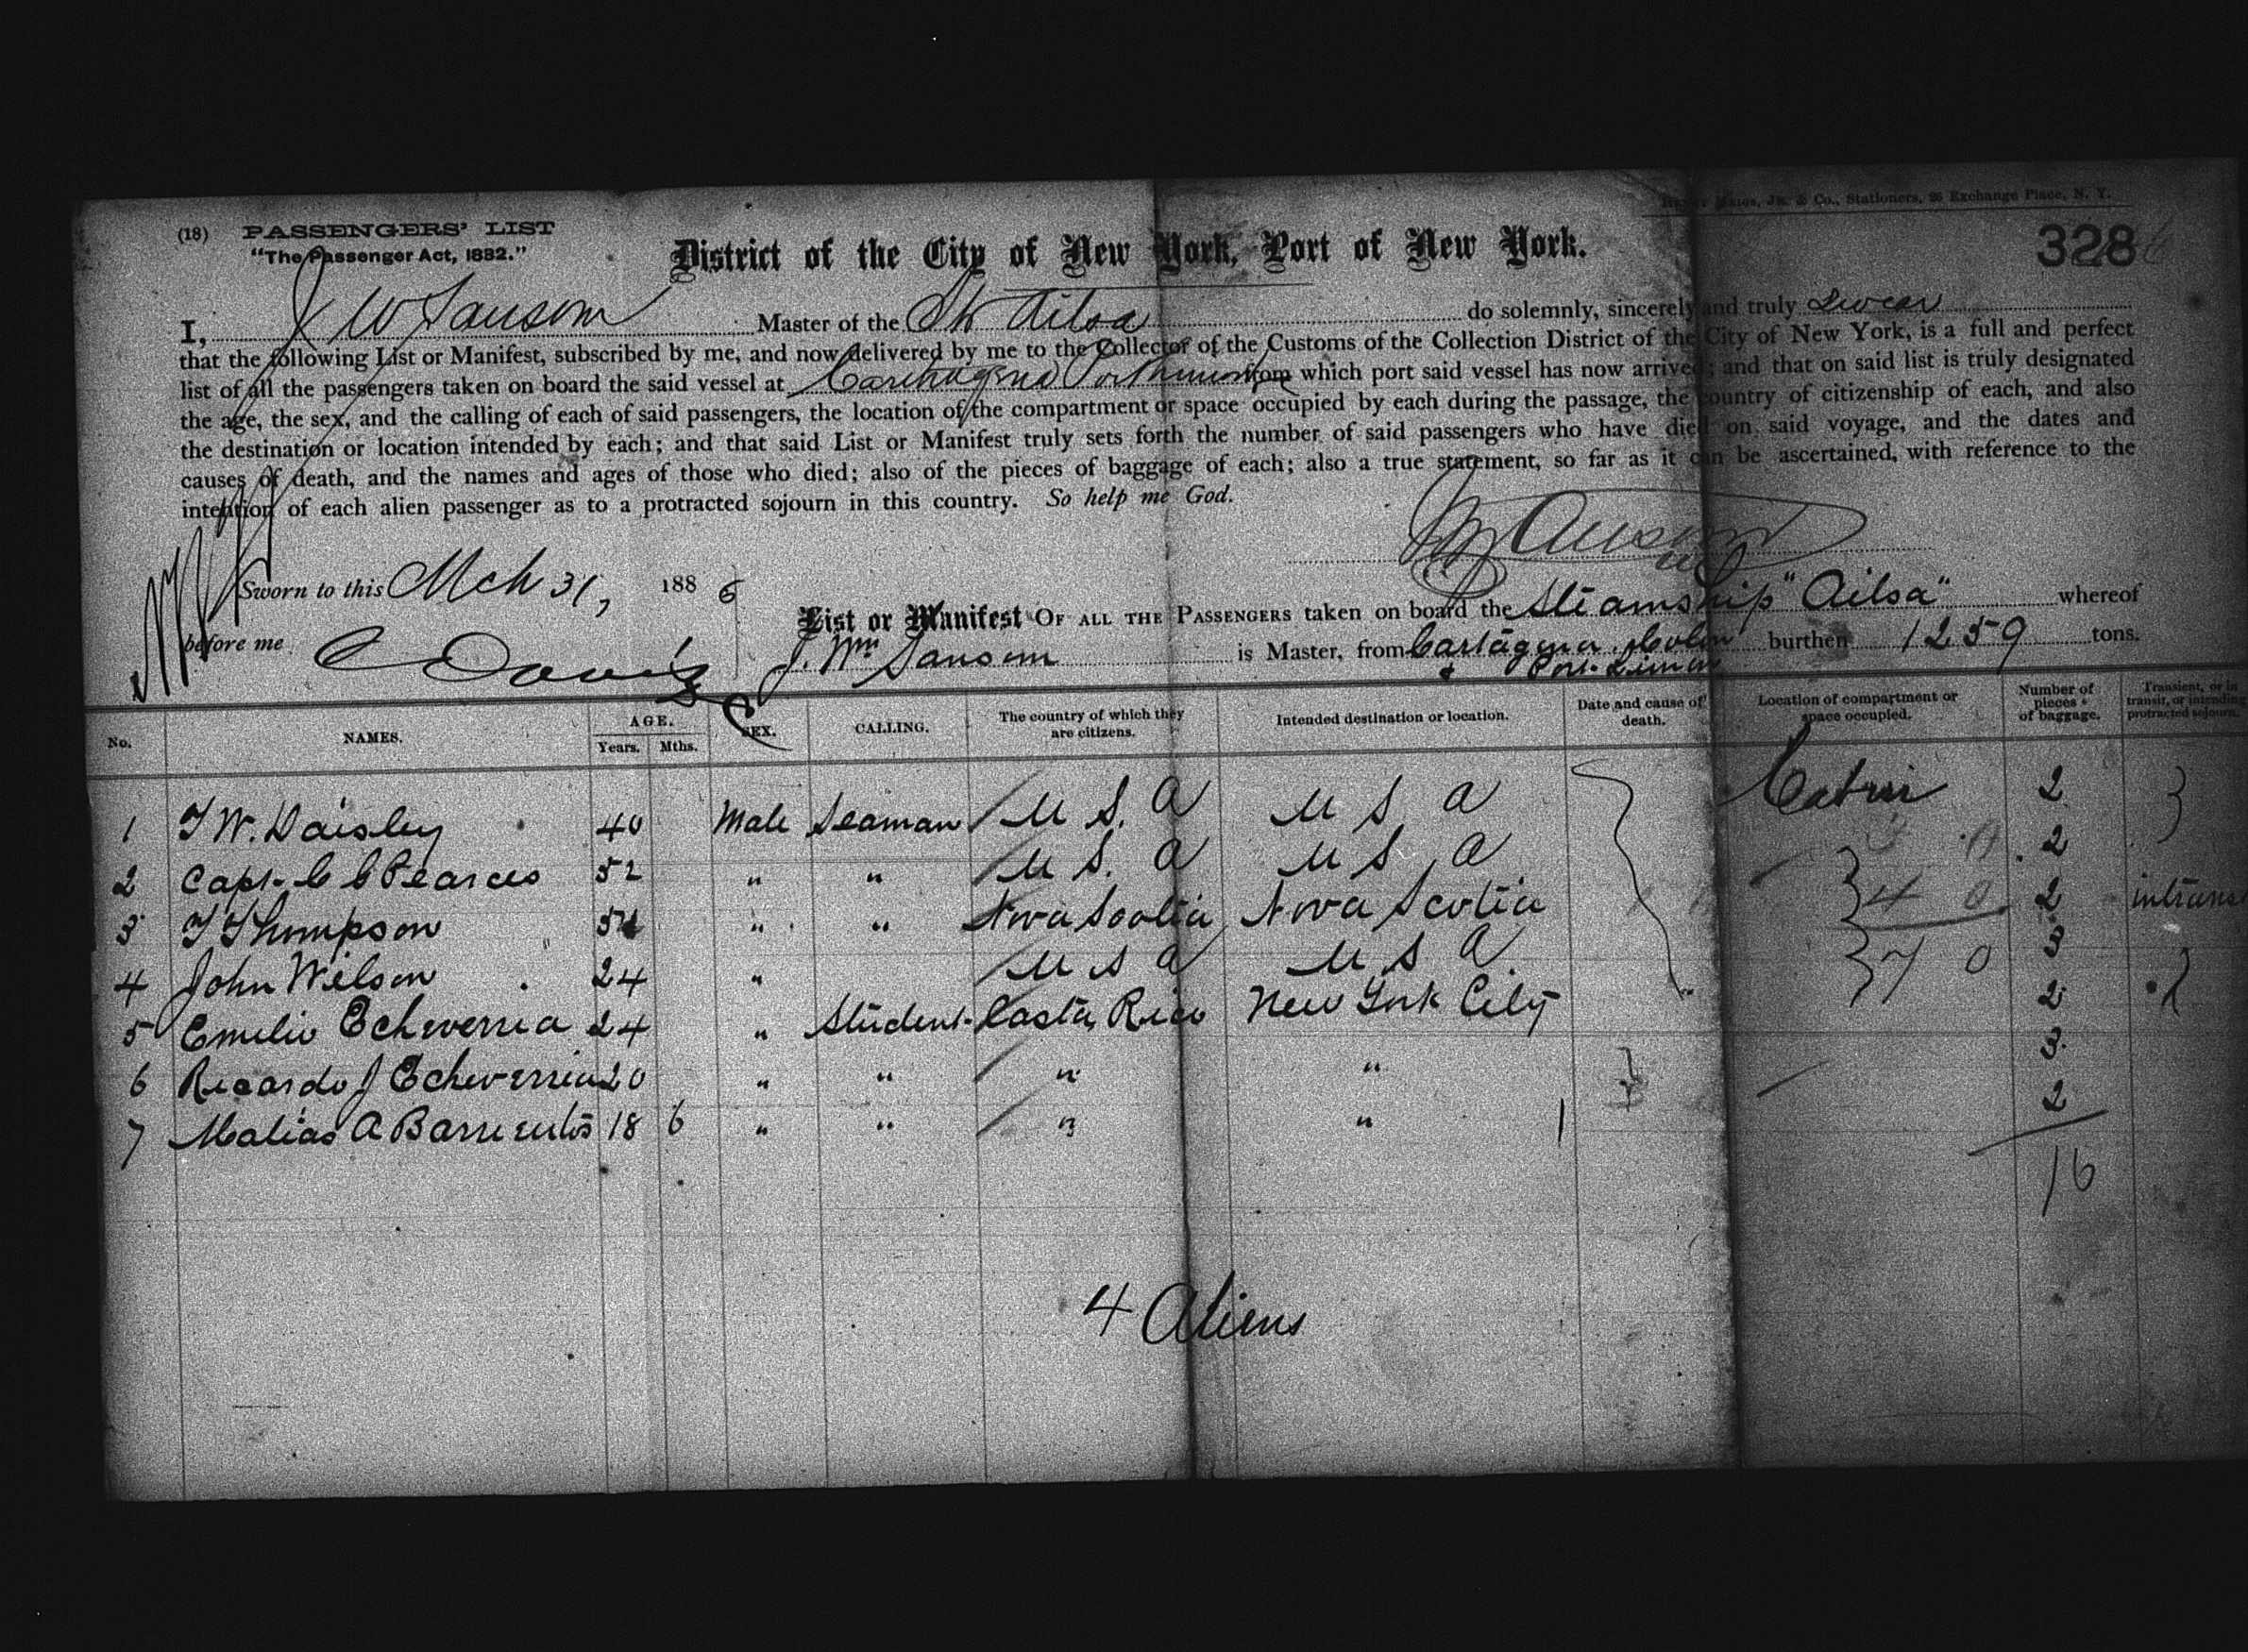 Jas. & Co., Stationers, 25 Exchange Place, N. Y.
(18) PASSENGERS' LIST
"The Passenger Act, 1882."
District of the City of New York, Port of New York.
328
I, J W Sansom Master of the Str Ailsa do solemnly, sincerely and truly swear
that the following List or Manifest, subscribed by me, and now delivered by me to the Collector of the Customs of the Collection District of the City of New York, is a full and perfect
list of all the passengers taken on board the said vessel at Carthagena from which port said vessel has now arrived; and that on said list is truly designated
the age, the sex, and the calling of each of said passengers, the location of the compartment or space occupied by each during the passage, the country of citizenship of each, and also
the destination or location intended by each; and that said List or Manifest truly sets forth the number of said passengers who have died on said voyage, and the dates and
causes of death, and the names and ages of those who died; also of the pieces of baggage of each; also a true statement, so far as it can be ascertained, with reference to the
intention of each alien passenger as to a protracted sojourn in this country. So help me God.
J W Sansom
Sworn to this Mch 31, 1886
before me C Davis
List or Manifest OF ALL THE PASSENGERS taken on board the Steamship "Ailsa" whereof
J. Wm Sansom is Master, from Cartagena, Colon & Port Limon burthen 1259 tons.
No. NAMES. AGE. Years. Mths. SEX. CALLING. The country of which they are citizens. Intended destination or location. Date and cause of death. Location of compartment or space occupied. Number of pieces of baggage. Transient, or in transit, or intending protracted sojourn.
1 T W. Daisley 40 Male Seaman U S. A U S A Cabin 2
2 Capt. C C Pearces 52 " " U S. A U S A 2
3 T Thompson " " Nova Scotia Nova Scotia 4 0 2 intrans
4 John Wilson 24 " U S A U S A 7 0 3
5 Emilio Echeverria 24 " Student Costa Rica New York City 2
6 Ricardo J Echeverria 20 " " " " 3
7 Matias A Barrientos 18 6 " " " " 2
16
4 Aliens